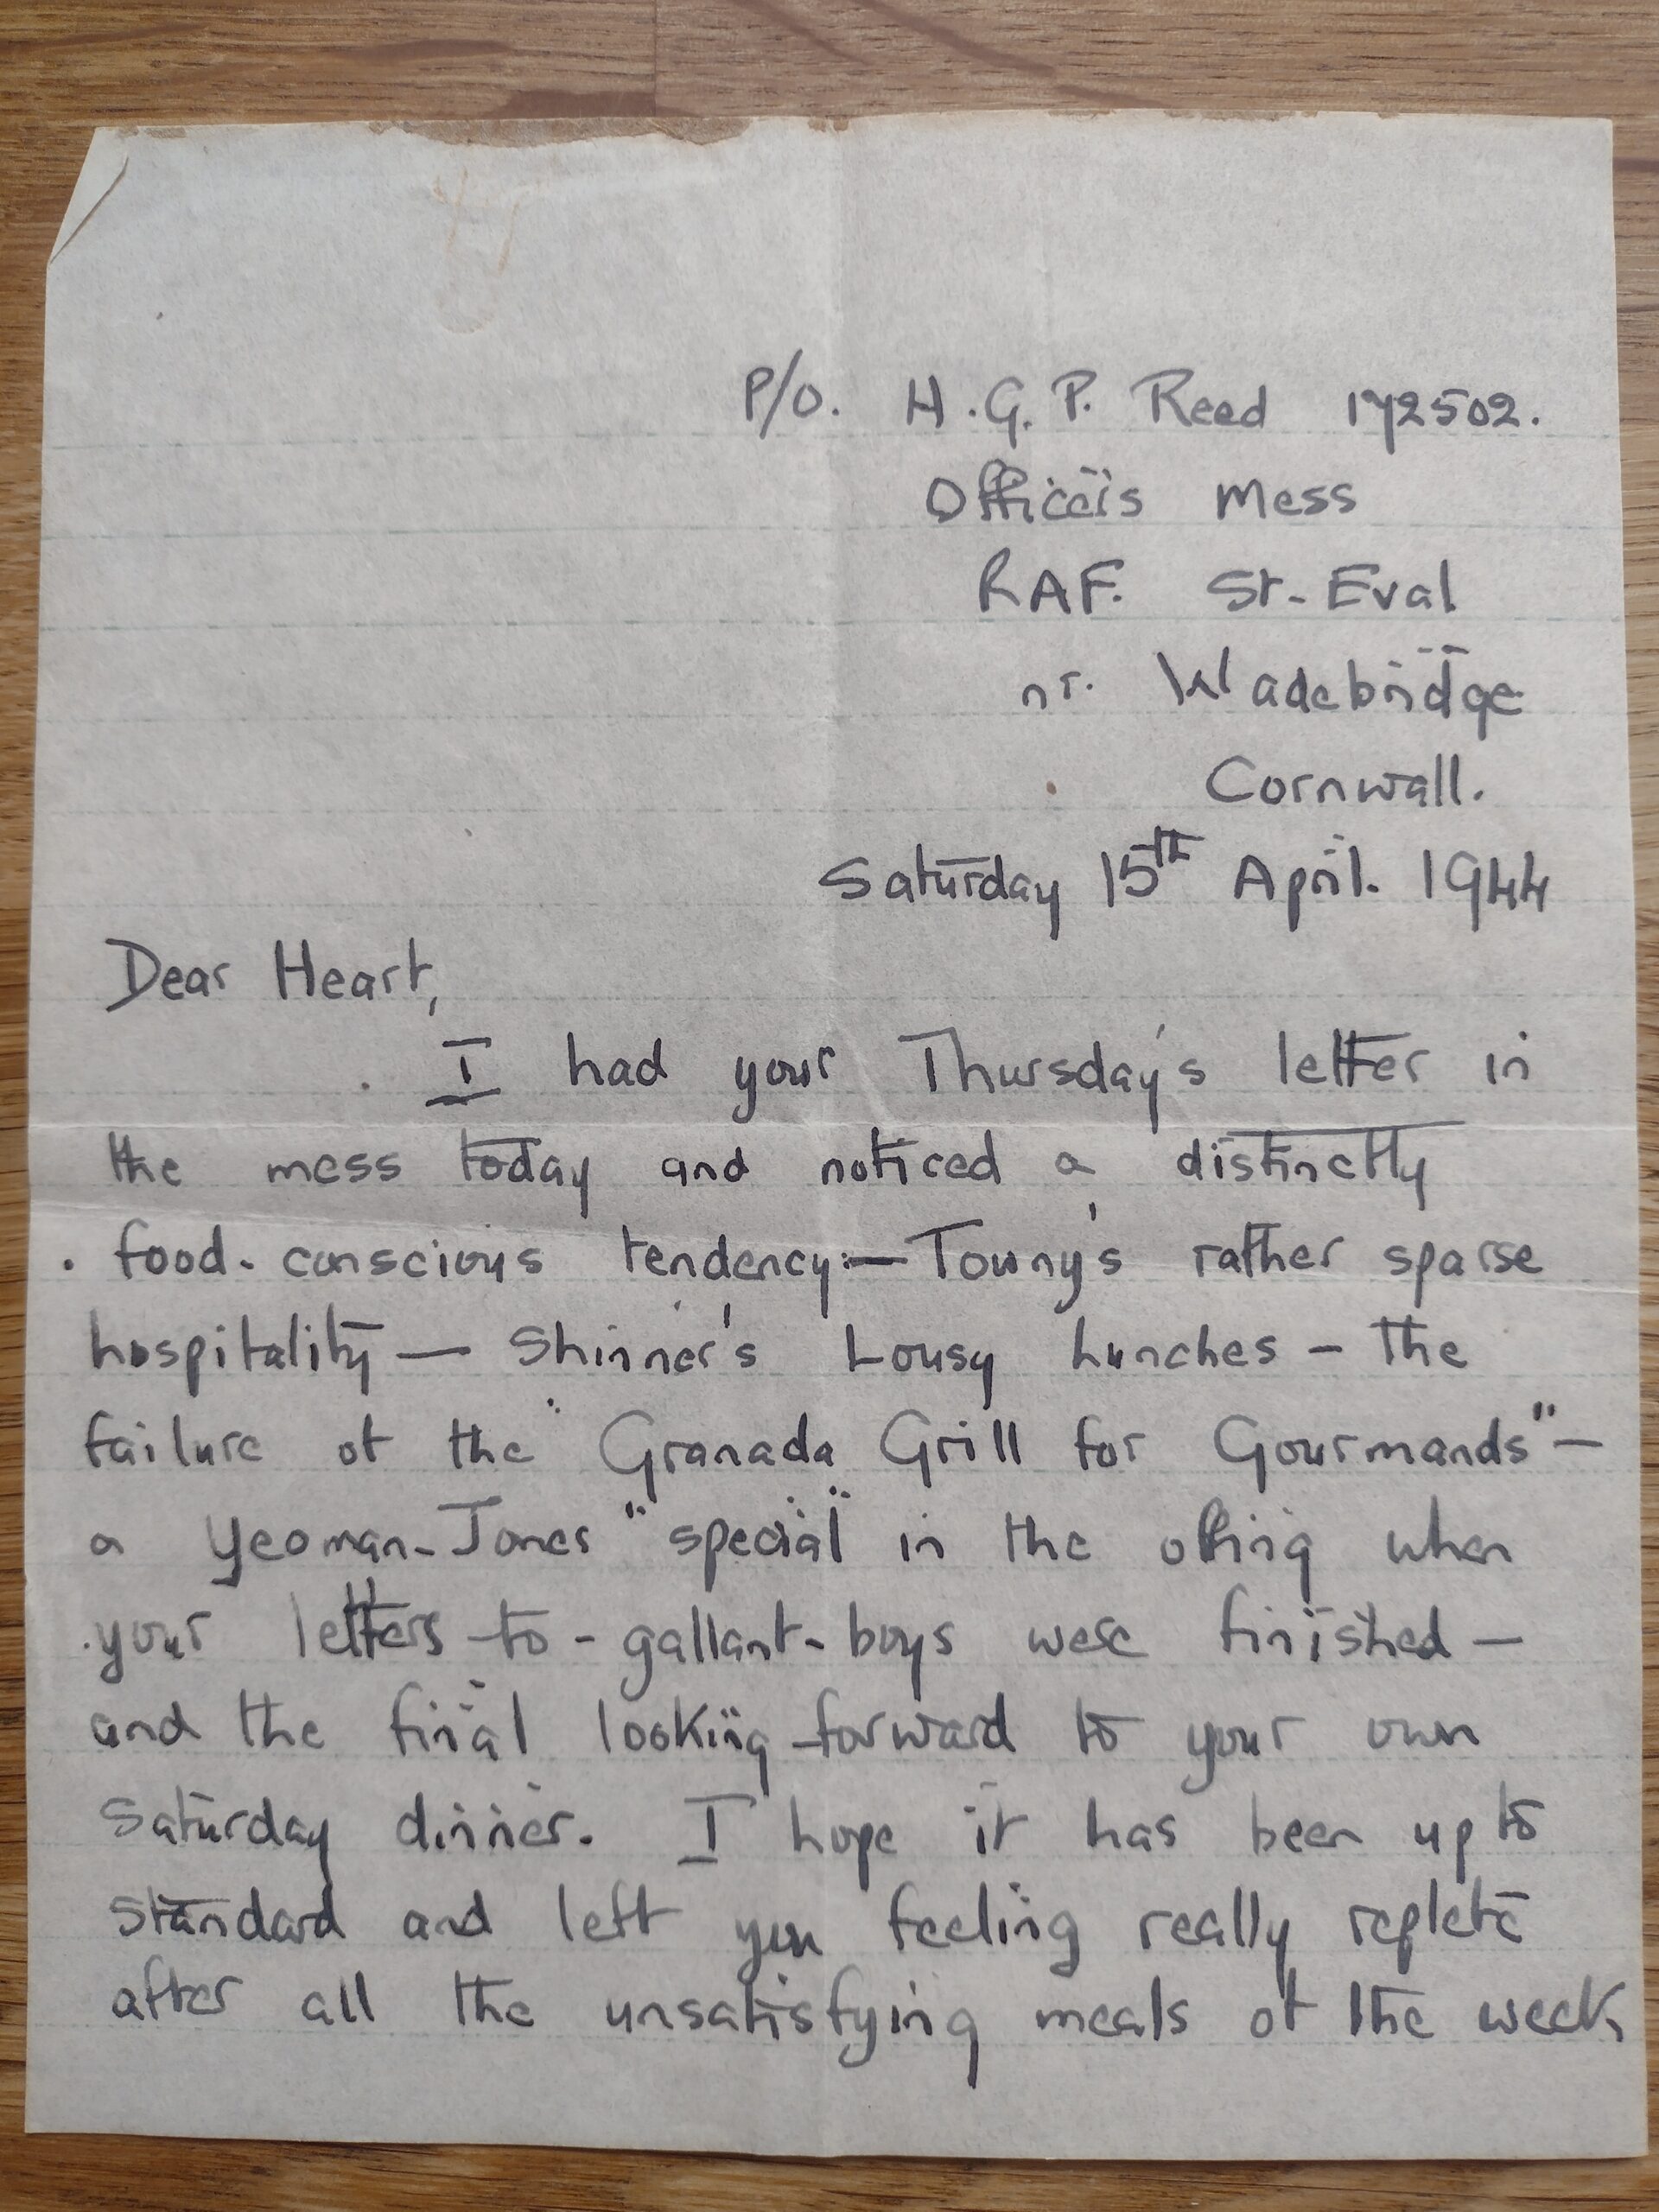 P/O. H.G.P. Reed 172502.
Officer's Mess
RAF. St-Eval
nr. Wadebridge
Cornwall.
Saturday 15th April. 1944
Dear Heart,
I had your Thursday's letter in
the mess today and noticed a distinctly
food-conscious tendency:— Towny's rather sparse
hospitality — Shinner's Lousy Lunches — the
failure of the "Granada Grill for Gourmands" —
a Yeoman-Jones "special" in the offing when
your letters-to-gallant-boys were finished —
and the final looking-forward to your own
Saturday dinner. I hope it has been up to
standard and left you feeling really replete
after all the unsatisfying meals of the week,